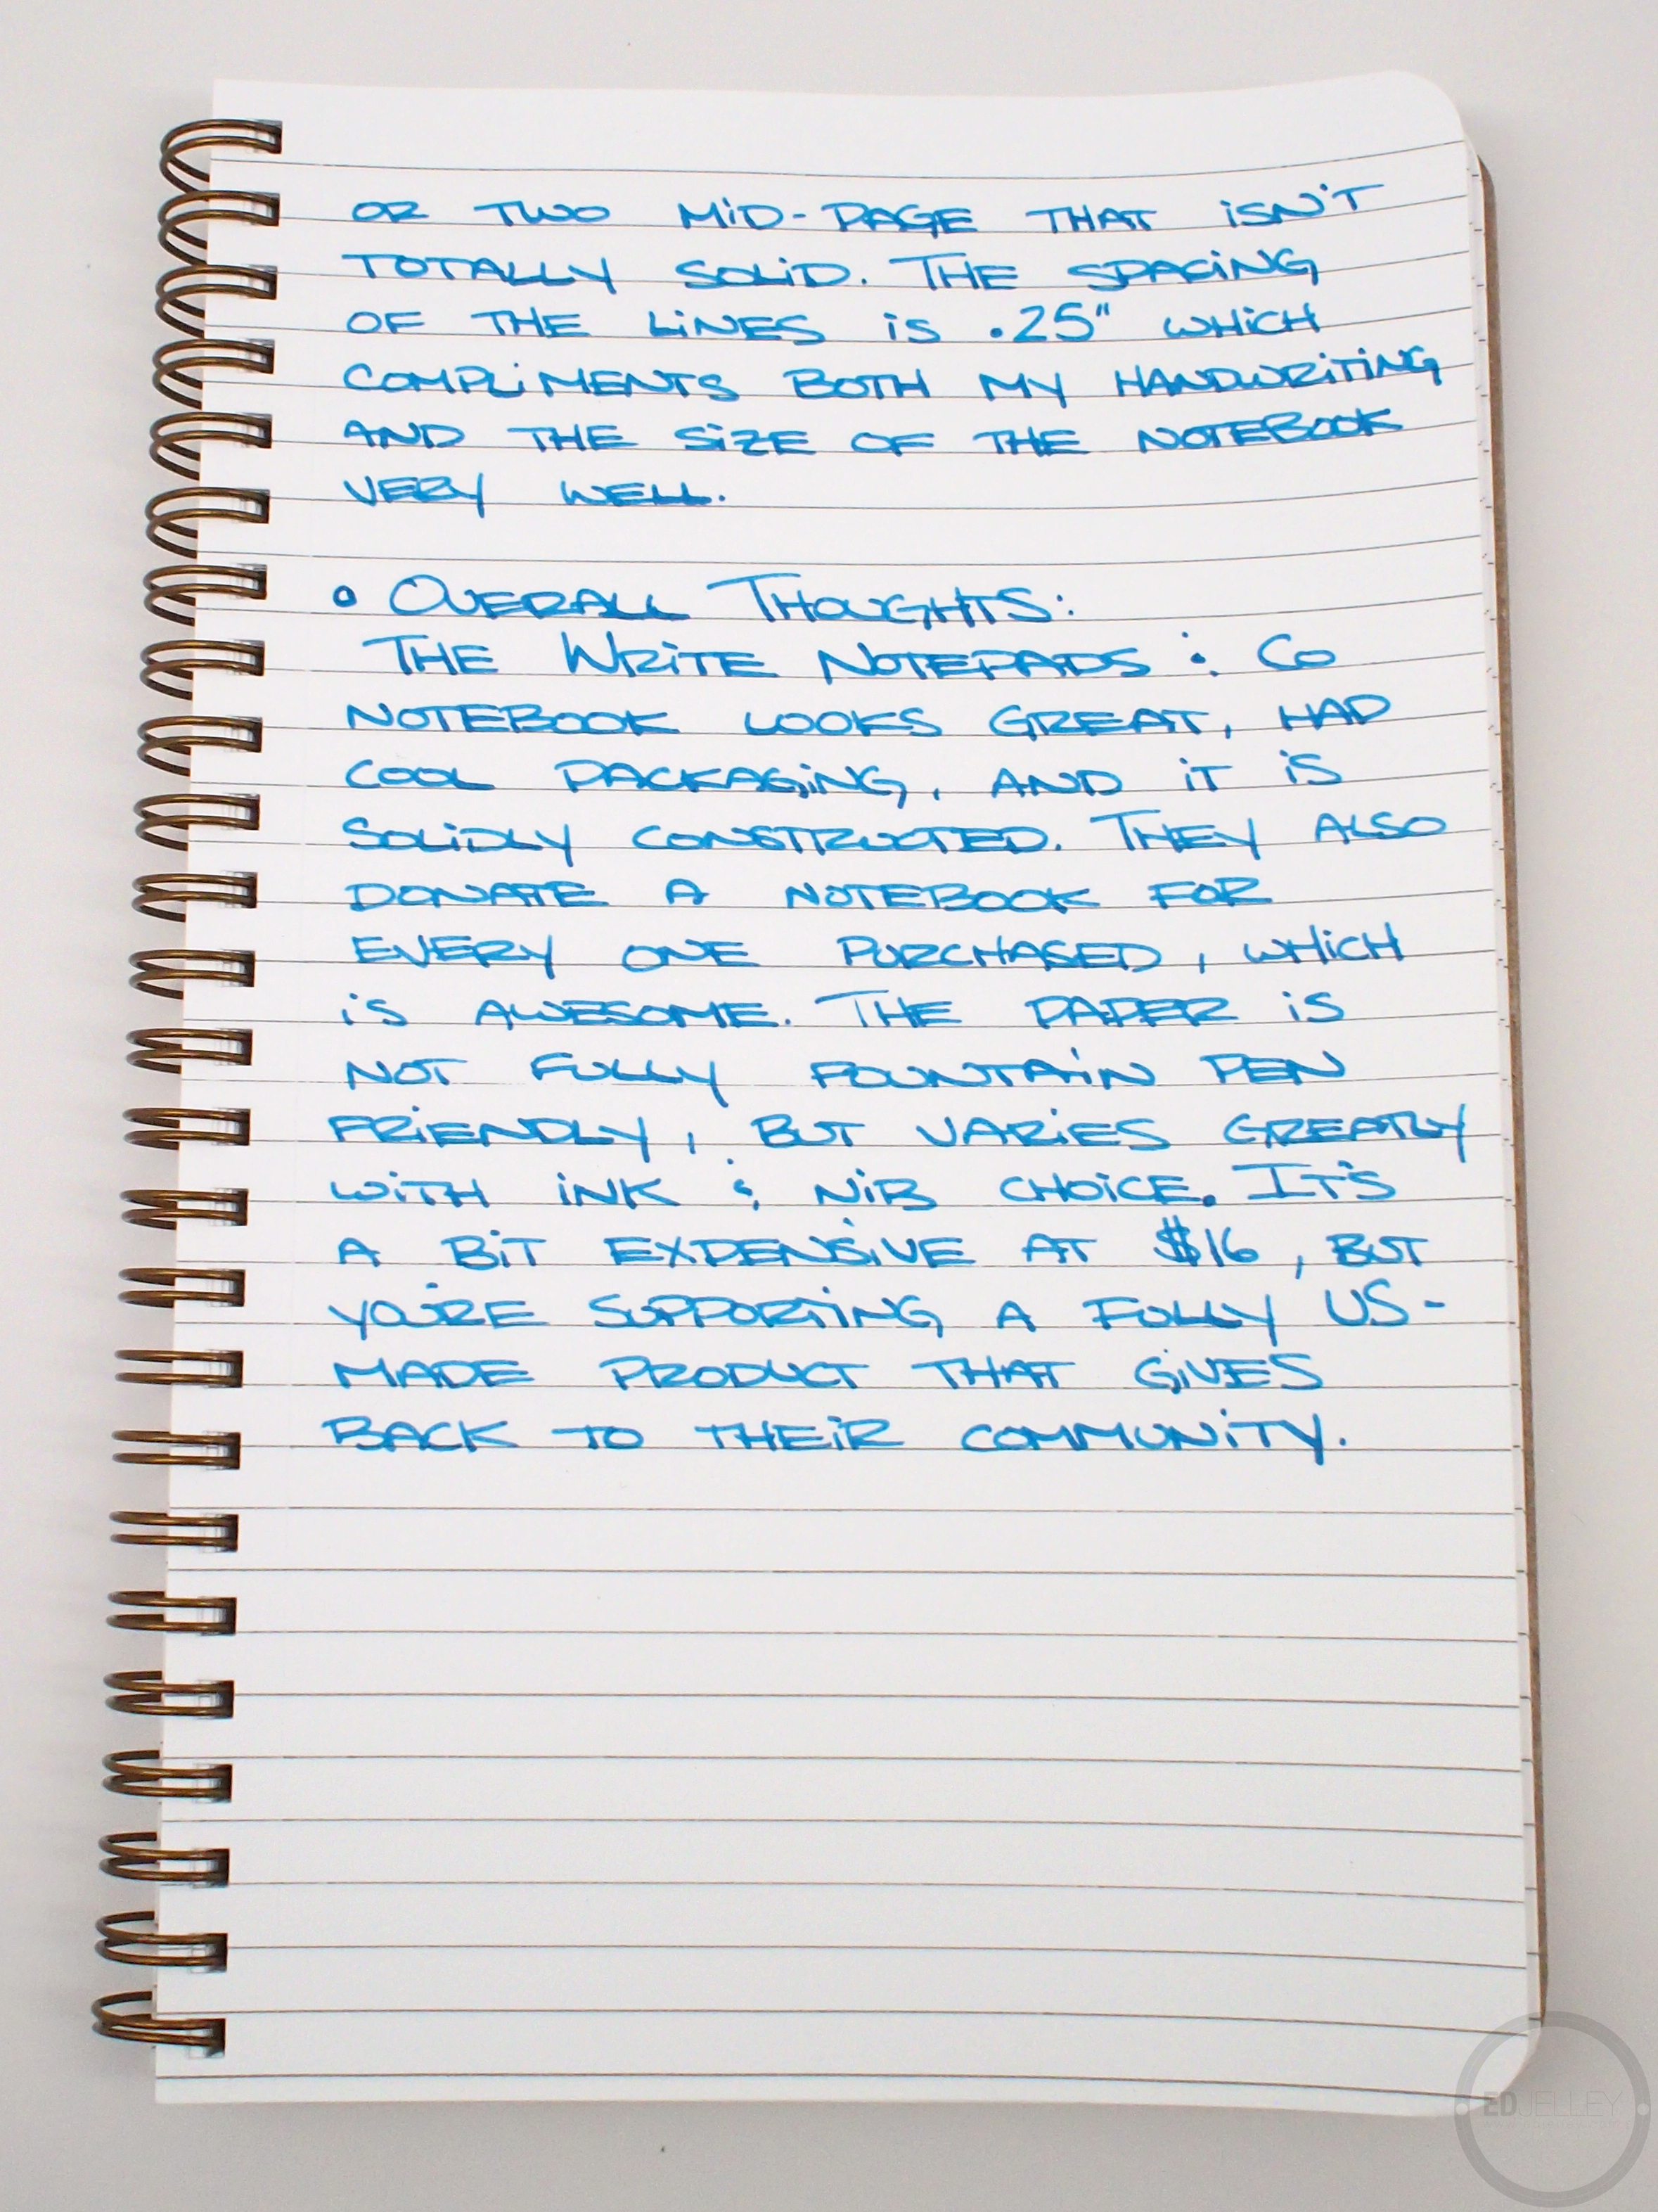 OR TWO MiD-PAGE THAT iSN'T
TOTALLY SOLiD. THE SPACiNG
OF THE LiNES iS .25" WHiCH
COMPLiMENTS BOTH MY HANDWRiTiNG
AND THE SiZE OF THE NOTEBOOK
VERY WELL.
• OVERALL THOUGHTS:
THE WRiTE NOTEPADS & CO
NOTEBOOK LOOKS GREAT, HAD
COOL PACKAGiNG, AND iT iS
SOLiDLY CONSTRUCTED. THEY ALSO
DONATE A NOTEBOOK FOR
EVERY ONE PURCHASED, WHiCH
iS AWESOME. THE PAPER iS
NOT FULLY FOUNTAiN PEN
FRiENDLY, BUT VARiES GREATLY
WiTH iNK & NiB CHOiCE. IT'S
A BiT EXPENSiVE AT $16, BUT
YOU'RE SUPPORTiNG A FULLY US-
MADE PRODUCT THAT GiVES
BACK TO THEiR COMMUNiTY.
EDJELLEY